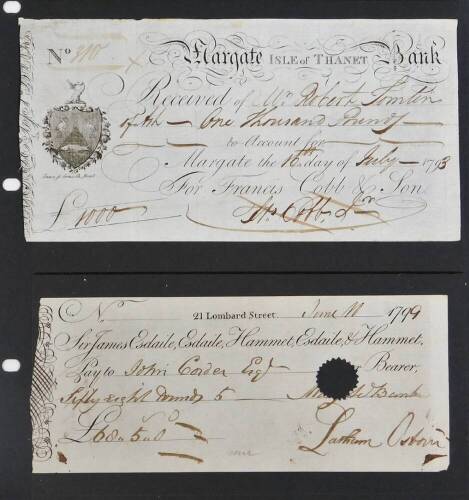 No 310 Margate ISLE OF THANET Bank
Received of Mr. Robert Tomlin
One Thousand Pounds
to Account for
Margate the 16 day of July 1793
For Francis Cobb & Son
£1000
No
21 Lombard Street. June 10 1799
Sir James Esdaile, Esdaile, Hammet, Esdaile, & Hammet,
Pay to John Corder Esqr Bearer,
Fifty eight Pounds 5